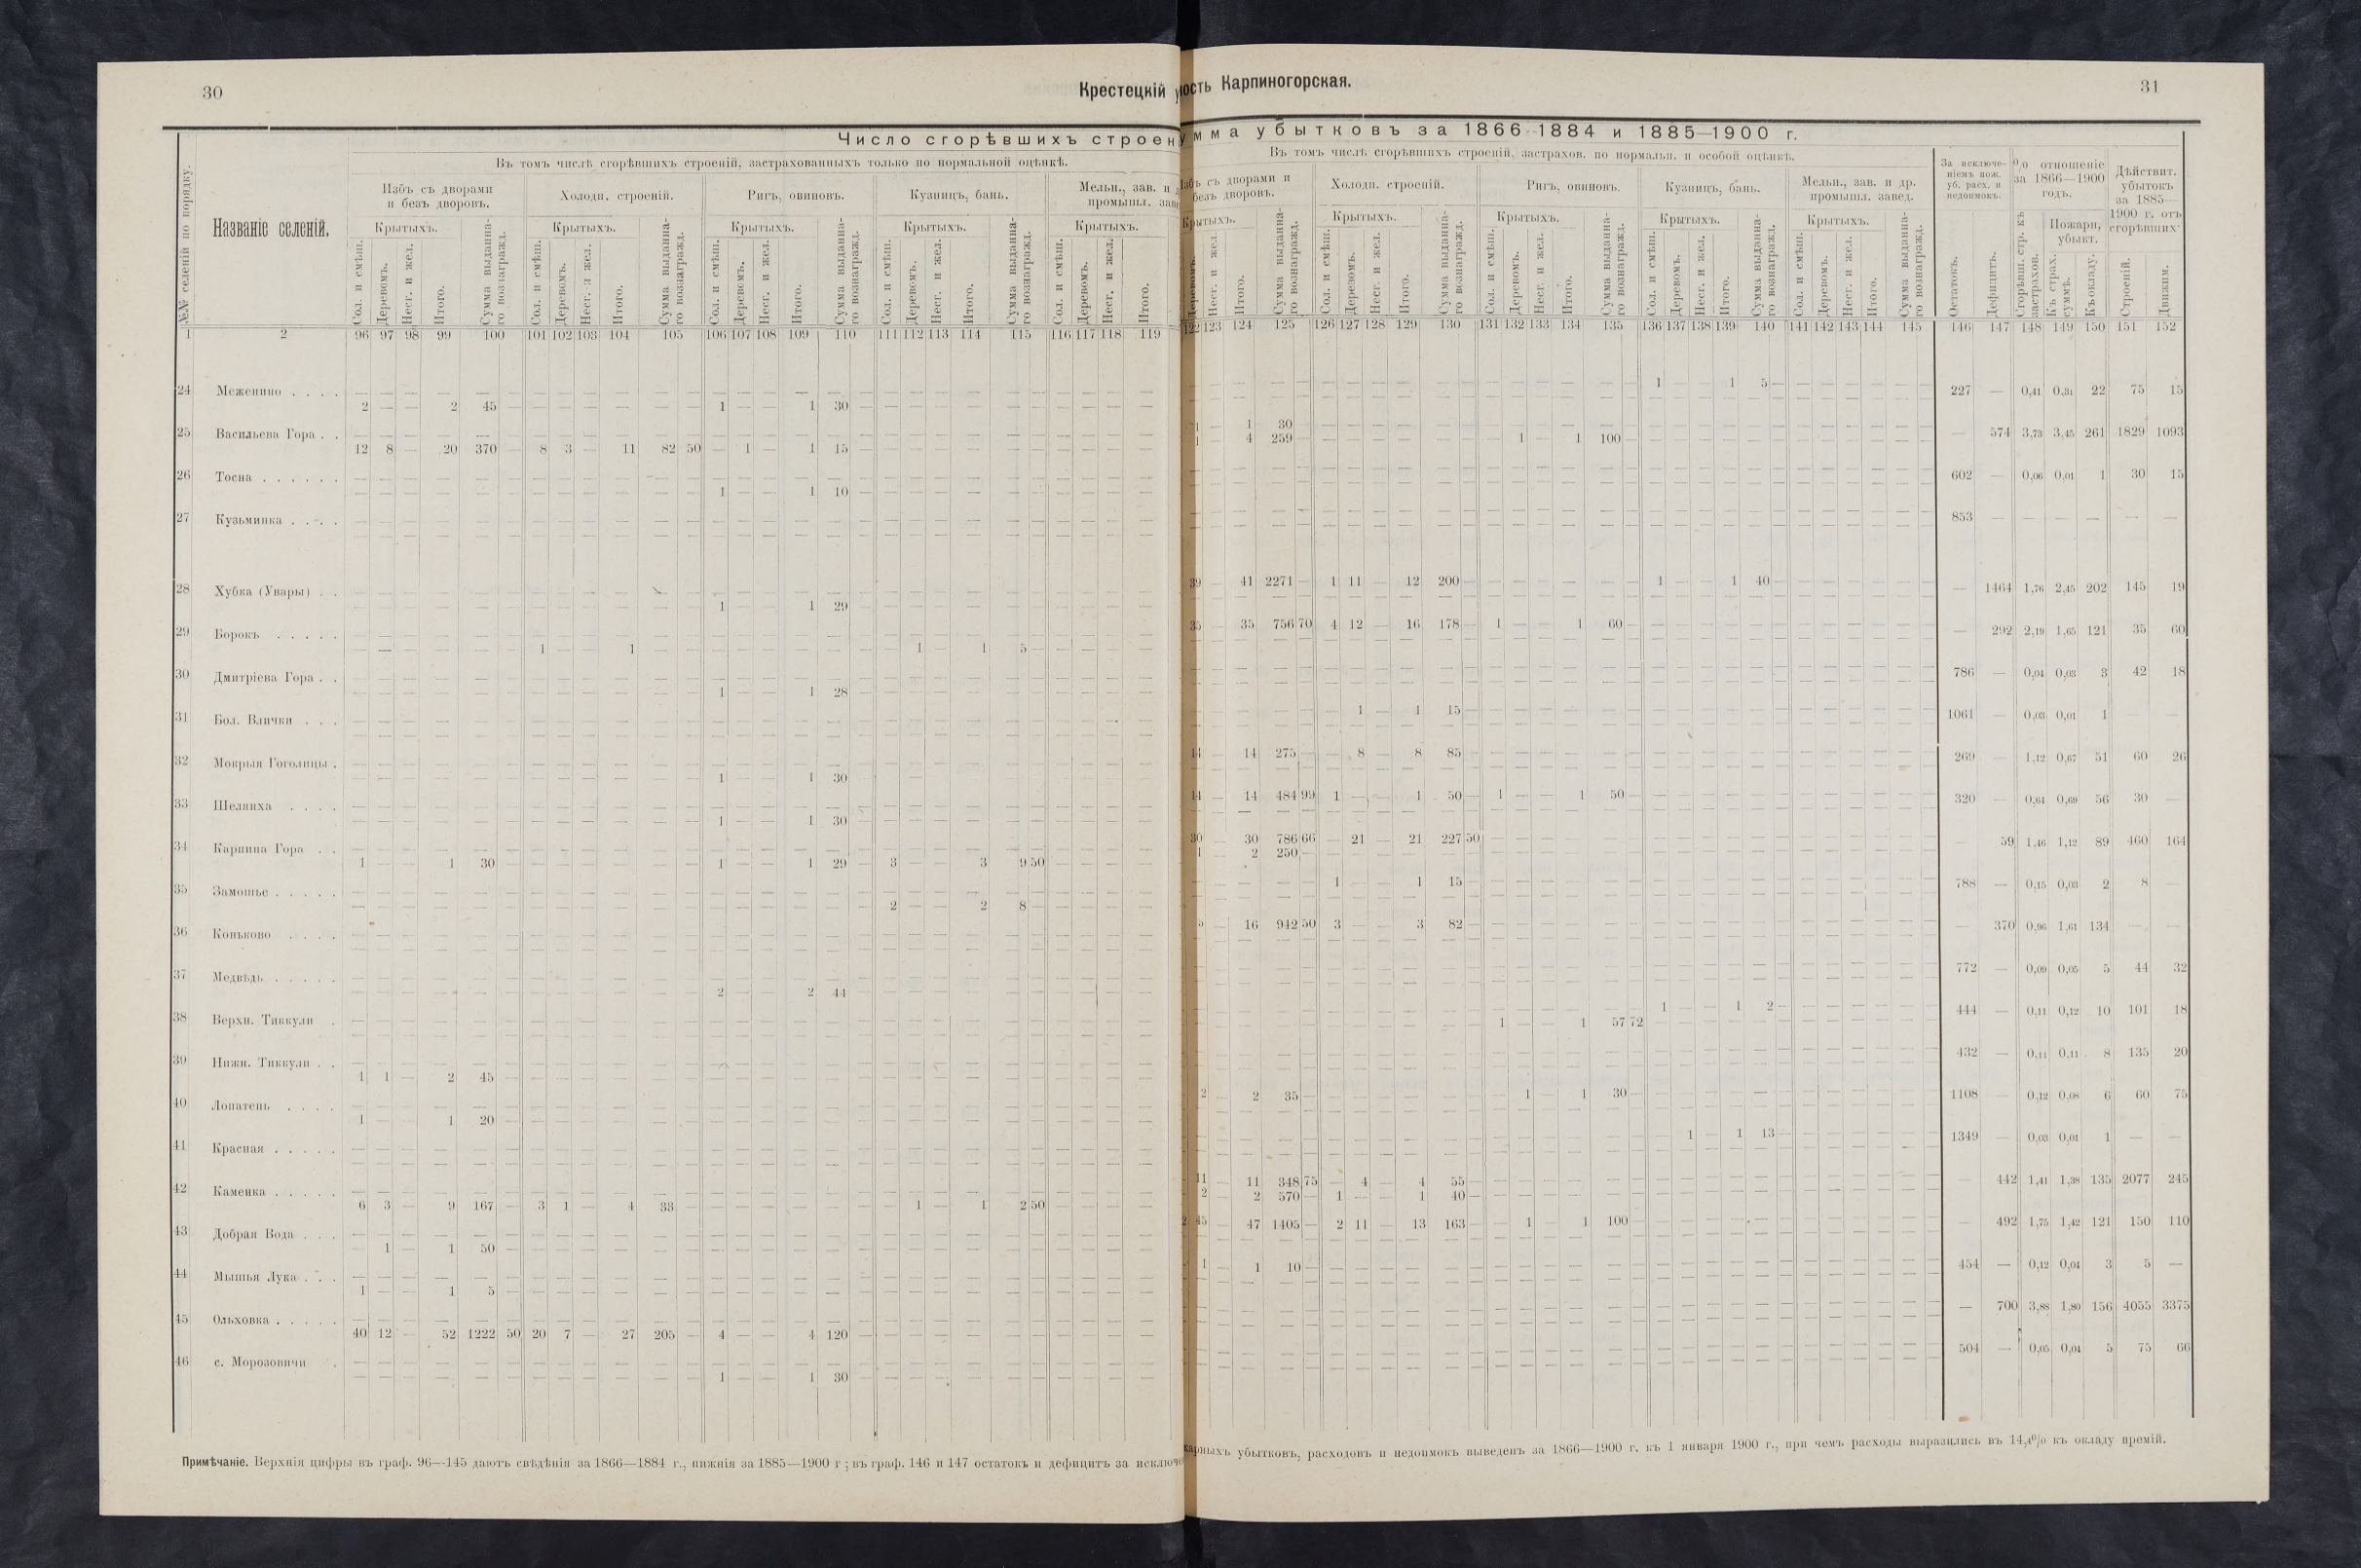 30
Крестецкій у
Число сгорѣвшихъ строен
Въ томъ числѣ сгорѣвшихъ строеній, застрахованныхъ только по нормальной оцѣнкѣ.
№№ селеній по порядку.
Названіе селеній.
Избъ съ дворами и безъ дворовъ.
Холодн. строеній.
Ригъ, овиновъ.
Кузницъ, бань.
Мельн., зав. и
промышл. зав
Крытыхъ. Крытыхъ. Крытыхъ. Крытыхъ. Крытыхъ.
Сол. и смѣш. Деревомъ. Несг. и жел. Итого. Сумма выданна-го вознагражд.
Сол. и смѣш. Деревомъ. Несг. и жел. Итого. Сумма выданна-го вознагражд.
Сол. и смѣш. Деревомъ. Несг. и жел. Итого. Сумма выданна-го вознагражд.
Сол. и смѣш. Деревомъ. Несг. и жел. Итого. Сумма выданна-го вознагражд.
Сол. и смѣш. Деревомъ. Несг. и жел. Итого.
1 2 96 97 98 99 100 101 102 103 104 105 106 107 108 109 110 111 112 113 114 115 116 117 118 119
24 Меженино . . . . — — — — — — — — — — — — — — — — — — — — — —
2 — — 2 45 — — — — — — 1 — — 1 30 — — — — — — — — — —
25 Васильева Гора . .
12 8 — 20 370 — 8 3 — 11 82 50 — 1 — 1 15 — — — — — — — — —
26 Тосна . . . . . .
1 — — 1 10 —
27 Кузьминка . . . .
28 Хубка (Увары) . .
1 — — 1 29
29 Борокъ . . . . .
1 1 1 — 1 5 —
30 Дмитріева Гора . .
1 — — 1 28
31 Бол. Влички . . .
32 Мокрыя Гоголицы .
1 — — 1 30
33 Шеляиха . . . .
1 — — 1 30
34 Карпина Гора . .
1 — — 1 30 — 1 — — 1 29 — 3 — — 3 9 50
35 Замошье . . . . .
2 — — 2 8 —
36 Коньково . . . .
37 Медвѣдь . . . . .
2 — — 2 44
38 Верхн. Тиккули .
39 Нижн. Тиккули . .
1 1 — 2 45 —
40 Лопатень . . . .
1 — — 1 20 —
41 Красная . . . . .
42 Каменка . . . . .
6 3 — 9 167 — 3 1 — 4 33 — 1 — 1 2 50
43 Добрая Вода . . .
— 1 — 1 50 —
44 Мышья Лука . . .
1 — — 1 5 —
45 Ольховка . . . . .
40 12 — 52 1222 50 20 7 — 27 205 — 4 — — 4 120 —
46 с. Морозовичи .
1 — — 1 30 —
Примѣчаніе. Верхнія цифры въ граф. 96—145 даютъ свѣдѣнія за 1866—1884 г., нижнія за 1885—1900 г; въ граф. 146 и 147 остатокъ и дефицитъ за исключе
31
ость Карпиногорская.
мма убытковъ за 1866–1884 и 1885–1900 г.
Въ томъ числѣ сгорѣвшихъ строеній, застрахов. по нормальн. и особой оцѣнкѣ.
збъ съ дворами и безъ дворовъ.
Холодн. строеній.
Ригъ, овиновъ.
Кузницъ, бань.
Мельн., зав. и др. промышл. завед.
За исключе-ніемъ пож. уб. расх. и недоимокъ.
% отношеніе за 1866—1900 годъ.
Дѣйствит. убытокъ за 1885—1900 г. отъ сгорѣвших
Крытыхъ. Крытыхъ. Крытыхъ. Крытыхъ. Крытыхъ.
Деревомъ. Несг. и жел. Итого. Сумма выданна-го вознагражд.
Сол. и смѣш. Деревомъ. Несг. и жел. Итого. Сумма выданна-го вознагражд.
Сол. и смѣш. Деревомъ. Несг. и жел. Итого. Сумма выданна-го вознагражд.
Сол. и смѣш. Деревомъ. Несг. и жел. Итого. Сумма выданна-го вознагражд.
Сол. и смѣш. Деревомъ. Несг. и жел. Итого. Сумма выданна-го вознагражд.
Остатокъ. Дефицитъ. Сгорѣвш. стр. къ застрахов. Пожарн. убыт. Къ страх. суммѣ. Къ окладу. Строеній. Движим.
122 123 124 125 126 127 128 129 130 131 132 133 134 135 136 137 138 139 140 141 142 143 144 145 146 147 148 149 150 151 152
1 — — 1 5 — 227 — 0,41 0,31 22 75 15
1 — 1 30
1 — 4 259 — 1 — 1 100 — — 574 3,73 3,45 261 1829 1093
602 — 0,06 0,01 1 30 15
853 — — — — — —
39 — 41 2271 — 1 11 — 12 200 — 1 — — 1 40 — — 1464 1,76 2,45 202 145 19
35 — 35 756 70 4 12 — 16 178 — 1 — — 1 60 — — 292 2,19 1,65 121 35 60
786 — 0,04 0,03 3 42 18
1 — 1 15 — 1061 — 0,03 0,01 1 — —
14 — 14 275 — — 8 — 8 85 — 269 — 1,12 0,67 51 60 26
14 — 14 484 99 1 — — 1 50 — 1 — — 1 50 — 320 — 0,64 0,69 56 30 —
30 — 30 786 66 — 21 — 21 227 50 — 59 1,46 1,12 89 460 164
1 — 2 250 —
1 — — 1 15 — 788 — 0,15 0,03 2 8 —
5 — 16 942 50 3 — — 3 82 — — 370 0,96 1,61 134 — —
772 — 0,09 0,05 5 44 32
1 — — 1 2 — 444 — 0,11 0,12 10 101 18
1 — — 1 57 72
432 — 0,11 0,11 8 135 20
2 — 2 35 — 1 — 1 30 — 1108 — 0,12 0,08 6 60 75
1 — 1 13 — 1349 — 0,03 0,01 1 — —
11 — 11 348 75 — 4 — 4 55 — — 442 1,41 1,38 135 2077 245
2 — 2 570 — 1 — — 1 40 —
2 45 — 47 1405 — 2 11 — 13 163 — — 1 — 1 100 — — 492 1,75 1,42 121 150 110
1 — 1 10 — 454 — 0,12 0,04 3 5 —
— 700 3,88 1,80 156 4055 3375
504 — 0,05 0,04 5 75 66
арныхъ убытковъ, расходовъ и недоимокъ выведенъ за 1866—1900 г. къ 1 января 1900 г., при чемъ расходы выразились въ 14,4% къ окладу премій.